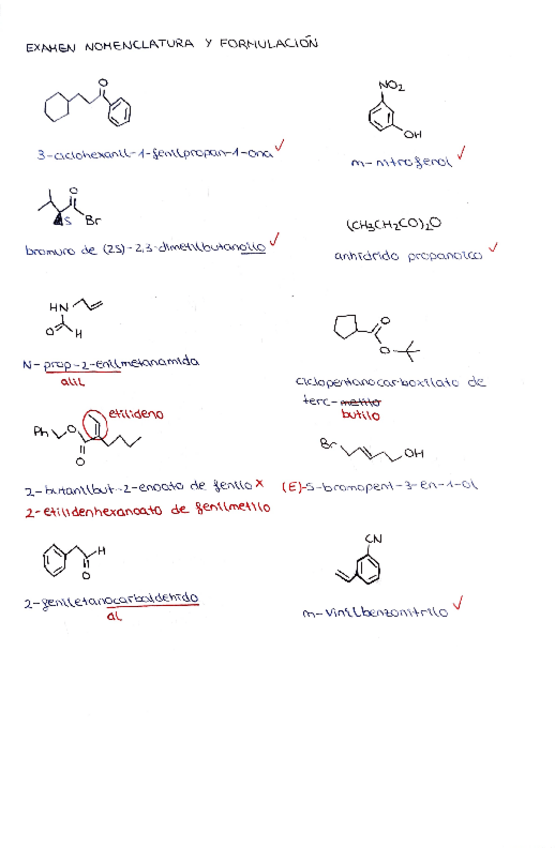 EXAMEN NOMENCLATURA Y FORMULACIÓN
O
NO2
OH
3-ciclohexanil-1-fenilpropan-1-ona ✓
m-nitrofenol ✓
O
S
Br
(CH3CH2CO)2O
bromuro de (2S)-2,3-dimetilbutanoilo ✓
anhidrido propanoico ✓
HN
O
H
O
O
N-prop-2-enilmetanamida
alil
ciclopentanocarboxilato de
terc-metilo
butilo
etilideno
Ph
O
O
Br
OH
2-butanilbut-2-enoato de fenilo x
(E)-5-bromopent-3-en-1-ol
2-etilidenhexanoato de fenilmetilo
H
O
CN
2-feniletanocarbaldehido
al
m-vinilbenzonitrilo ✓